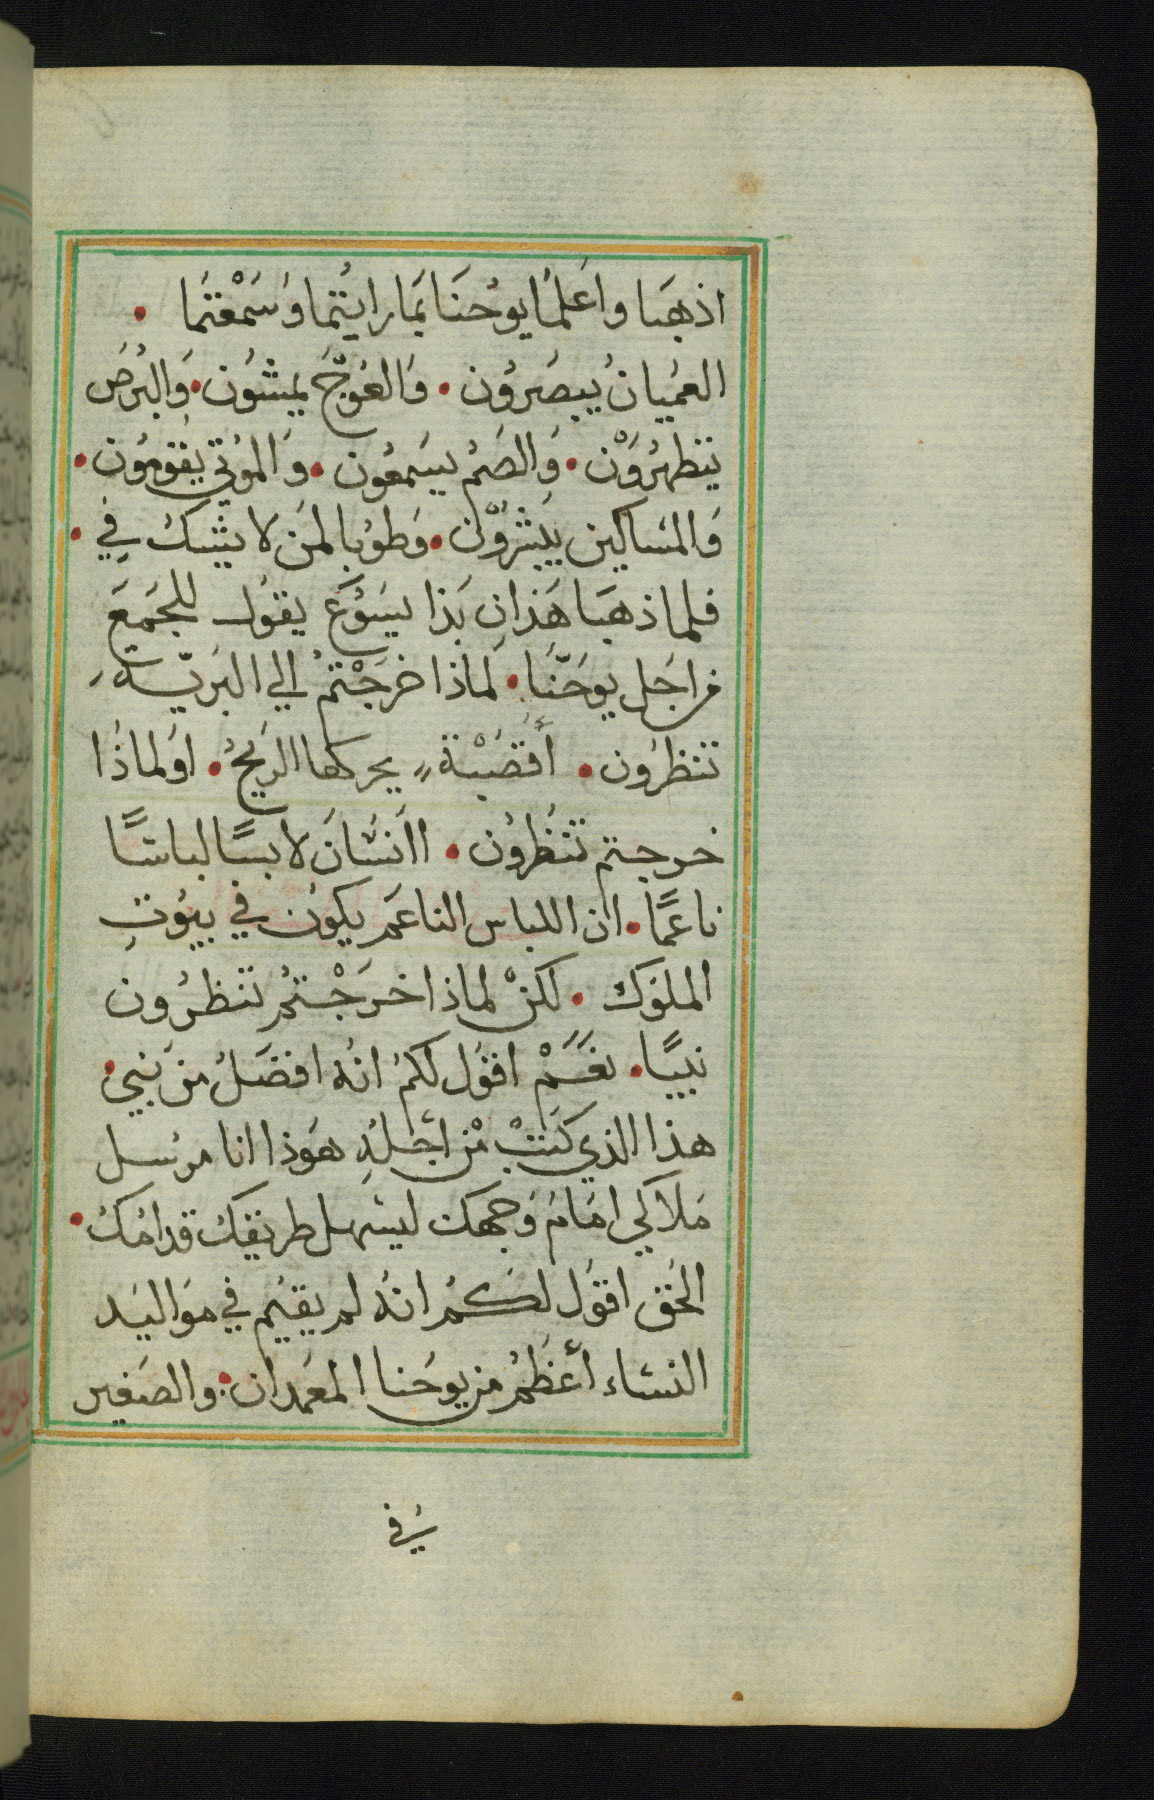 اذهبَا واَعلمُا يوُحنَا بمَا رايتُما وَسَمْعتمَا •
العمُيانُ يُبصَروُن • وَالعوُجَّ يمشوُن • وَالبُرصَ
يتطهرُوَن • وَالصَمُ يسَمعوُن • وَالموُتي يقوُموُن •
وَالمسَاكين يُبَشروُن • وَطوُبا لمَن لا يشكُ فِي •
فلما ذهبَا هَذانِ بَذا يسَوُعَ يقوُل للجَمعَ
من اجَل يوحَنَّا • لماذا خرَجَتمُ الي البَريّــه
تنظرُون • أقَصَبْة يحركها الرَيحُ • اوَلماذا
خرجتم تنظُروُن • اانسَان لابسًا لباسًا
ناعمًا • ان اللباس الناعَم يكوُن في بيوُتِ
الملوَك • لكنْ لماذا خرَجْتمُ تنظرُون
نبيًا • نعَــَمْ اقوُل لكمُ انهُ افضَلُ من نَبي •
هذا الذي كتبَْ مْن اجْلهِ هوَذا انا مرُسل
مَلاكي امَامَ وَجهكَ ليسَهل طريقكَ قدامُكَ •
الحُق اقوُل لكــمُ انهُ لم يقيُم في موَاليَد
النسَاء أعَظَمُ من يوحَنا المعَمدان • والصَغير
في